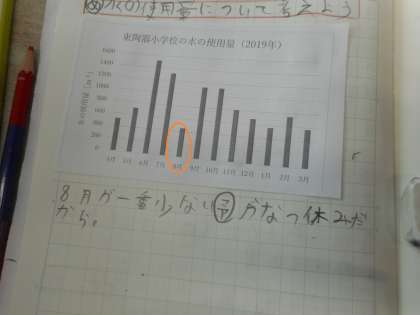 水の使用量について考えよう
東阿部小学校の水の使用量（2019年）
水の使用量 [m³]
1600
1400
1200
1000
800
600
400
200
0
4月 5月 6月 7月 8月 9月 10月 11月 12月 1月 2月 3月
8月が一番少ない 予 がなつ休みだ
から。